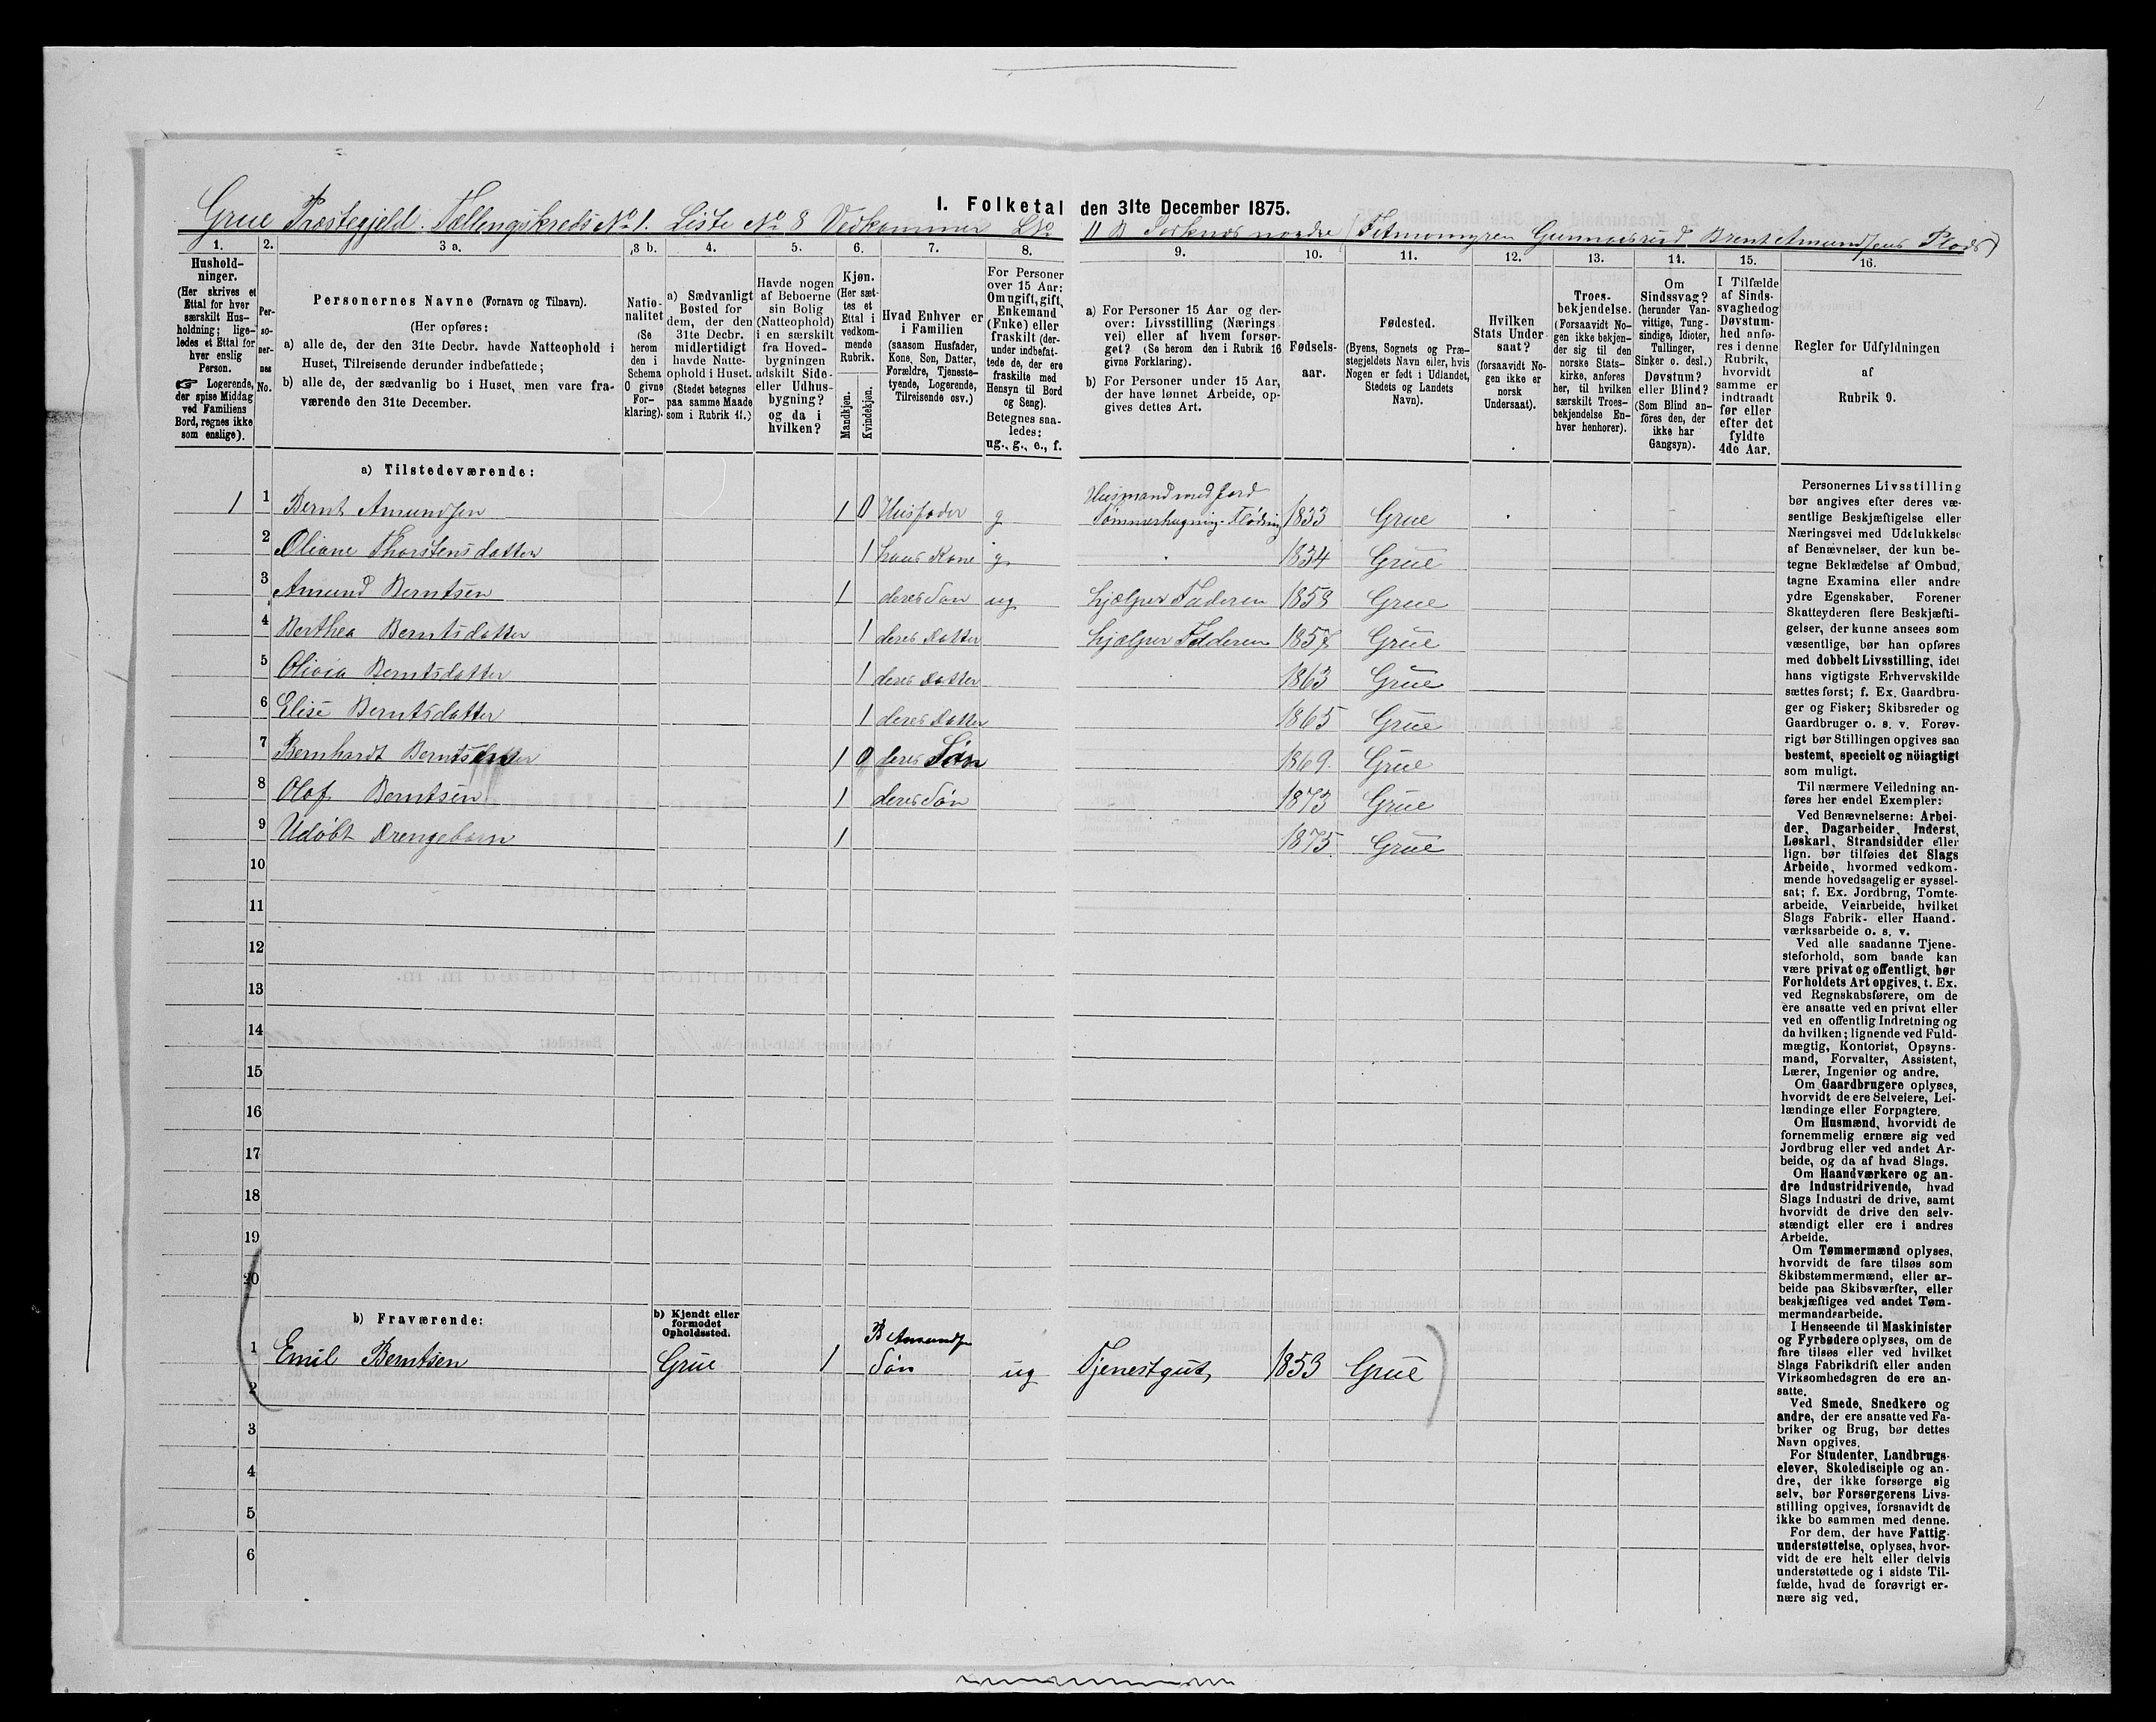 I. Folketal den 31te December 1875.
Grue Præstegjeld. Tællingskreds No 1. Liste No 8 Vedkommer LNo 11 B nordre Gunnersrud Amundsens Plads)
1. 2. 3 a. 3 b. 4. 5. 6. 7. 8. 9. 10. 11. 12. 13. 14. 15. 16.
Hushold-
ninger.
(Her skrives et
Ettal for hver
særskilt Hus-
holdning; lige-
ledes et Ettal for
hver enslig
Person.
☞ Logerende,
der spise Middag
ved Familiens
Bord, regnes ikke
som enslige).
Per-
so-
ner-
nes
No.
Personernes Navne (Fornavn og Tilnavn).
(Her opføres:
a) alle de, der den 31te Decbr. havde Natteophold i
Huset, Tilreisende derunder indbefattede;
b) alle de, der sædvanlig bo i Huset, men vare fra-
værende den 31te December.
Natio-
nalitet
(Se
herom
den i
Schema
O givne
For-
klaring).
a) Sædvanligt
Bosted for
dem, der den
31te Decbr.
midlertidigt
havde Natte-
ophold i Huset.
(Stedet betegnes
paa samme Maade
som i Rubrik 11.)
Havde nogen
af Beboerne
sin Bolig
(Natteophold)
i en særskilt
fra Hoved-
bygningen
adskilt Side-
eller Udhus-
bygning?
og da i
hvilken?
Kjøn.
(Her sæt-
tes et
Ettal i
vedkom-
mende
Rubrik.
Mandkjøn.
Kvindekjøn.
Hvad Enhver er
i Familien
(saasom Husfader,
Kone, Søn, Datter,
Forældre, Tjeneste-
tyende, Logerende,
Tilreisende osv.)
For Personer
over 15 Aar:
Om ugift, gift,
Enkemand
(Enke) eller
fraskilt (der-
under indbefat-
tede de, der ere
fraskilte med
Hensyn til Bord
og Seng).
Betegnes saa-
ledes:
ug., g., e., f.
a) For Personer 15 Aar og der-
over: Livsstilling (Nærings
vei) eller af hvem forsør-
get? (Se herom den i Rubrik 16
givne Forklaring).
b) For Personer under 15 Aar,
der have lønnet Arbeide, op-
gives dettes Art.
Fødsels-
aar.
Fødested.
(Byens, Sognets og Præ-
stegjeldets Navn eller, hvis
Nogen er født i Udlandet,
Stedets og Landets
Navn).
Hvilken
Stats Under
saat?
(forsaavidt No-
gen ikke er
norsk
Undersaat).
Troes-
bekjendelse.
(Forsaavidt No-
gen ikke bekjen-
der sig til den
norske Stats-
kirke, anføres
her, til hvilken
særskilt Troes-
bekjendelse En-
hver henhører).
Om
Sindssvag?
(herunder Van-
vittige, Tung-
sindige, Idioter,
Tullinger,
Sinker o. desl.)
Døvstum?
eller Blind?
(Som Blind an-
føres den, der
ikke har
Gangsyn).
I Tilfælde
af Sinds-
svaghed og
Døvstum-
hed anfø-
res i denne
Rubrik,
hvorvidt
samme er
indtraadt
før eller
efter det
fyldte
4de Aar.
Regler for Udfyldningen
af
Rubrik 9.
a) Tilstedeværende:
1 1 Bernt Amundsen 1 0 Husfader g Husmand med Jord Tømmerhugning. Flødning 1833 Grue
2 Oliane Thorstensdatter 1 hans Kone g. 1834 Grue
3 Amund Berntsen 1 deres Søn ug hjælper Faderen 1858 Grue
4 Berthea Berntsdatter 1 deres Datter hjælper Faderen 1857 Grue
5 Olivia Berntsdatter 1 deres Datter 1863 Grue
6 Elise Berntsdatter 1 deres Datter 1865 Grue
7 Bernhardt 1 0 deres Søn 1869. Grue
8 Olaf Berntsen 1 deres Søn 1873 Grue
9 Udøbt Drengebarn 1 1875. Grue
10
11
12
13
14
15
16
17
18
19
20
b) Fraværende:
b) Kjendt eller
formodet
Opholdssted.
1 Emil Berntsen Grue 1 B Amundsen Søn ug Tjenestgut, 1853 Grue
2
3
4
5
6
Personernes Livsstilling
bør angives efter deres væ-
sentlige Beskjæftigelse eller
Næringsvei med Udelukkelse
af Benævnelser, der kun be-
tegne Beklædelse af Ombud,
tagne Examina eller andre
ydre Egenskaber. Forener
Skatteyderen flere Beskjæfti-
gelser, der kunne ansees som
væsentlige, bør han opføres
med dobbelt Livsstilling, idet
hans vigtigste Erhvervskilde
sættes først; f. Ex. Gaardbru-
ger og Fisker; Skibsreder og
Gaardbruger o. s. v. Forøv-
rigt bør Stillingen opgives saa
bestemt, specielt og nöiagtigt
som muligt.
Til nærmere Veiledning an-
føres her endel Exempler:
Ved Benævnelserne: Arbei-
der, Dagarbeider, Inderst,
Løskarl, Strandsidder eller
lign. bør tilføies det Slags
Arbeide, hvormed vedkom-
mende hovedsagelig er syssel-
sat; f. Ex. Jordbrug, Tomte-
arbeide, Veiarbeide, hvilket
Slags Fabrik- eller Haand-
værksarbeide o. s. v.
Ved alle saadanne Tjene-
steforhold, som baade kan
være privat og offentligt, bør
Forholdets Art opgives, t. Ex.
ved Regnskabsførere, om de
ere ansatte ved en privat eller
ved en offentlig Indretning og
da hvilken; lignende ved Fuld-
mægtig, Kontorist, Opsyns-
mand, Forvalter, Assistent,
Lærer, Ingeniør og andre.
Om Gaardbrugere oplyses,
hvorvidt de ere Selveiere, Lei-
lændinge eller Forpagtere.
Om Husmænd, hvorvidt de
fornemmelig ernære sig ved
Jordbrug eller ved andet Ar-
beide, og da af hvad Slags.
Om Haandværkere og an-
dre industridrivende, hvad
Slags Industri de drive, samt
hvorvidt de drive den selv-
stændigt eller ere i andres
Arbeide.
Om Tømmermænd oplyses,
hvorvidt de fare tilsøs som
Skibstømmermænd, eller ar-
beide paa Skibsværfter, eller
beskjæftiges ved andet Tøm-
mermandsarbeide.
I Henseende til Maskinister
og Fyrbødere oplyses, om de
fare tilsøs eller ved hvilket
Slags Fabrikdrift eller anden
Virksomhedsgren de ere an-
satte.
Ved Smede, Snedkere og
andre, der ere ansatte ved Fa-
briker og Brug, bør dettes
Navn opgives.
For Studenter, Landbrugs-
elever, Skoledisciple og an-
dre, der ikke forsørge sig
selv, bør Forsørgerens Livs-
stilling opgives, forsaavidt de
ikke bo sammen med denne.
For dem, der have Fattig-
understøttelse, oplyses, hvor-
vidt de ere helt eller delvis
understøttede og i sidste Til-
fælde, hvad de forøvrigt er-
nære sig ved.